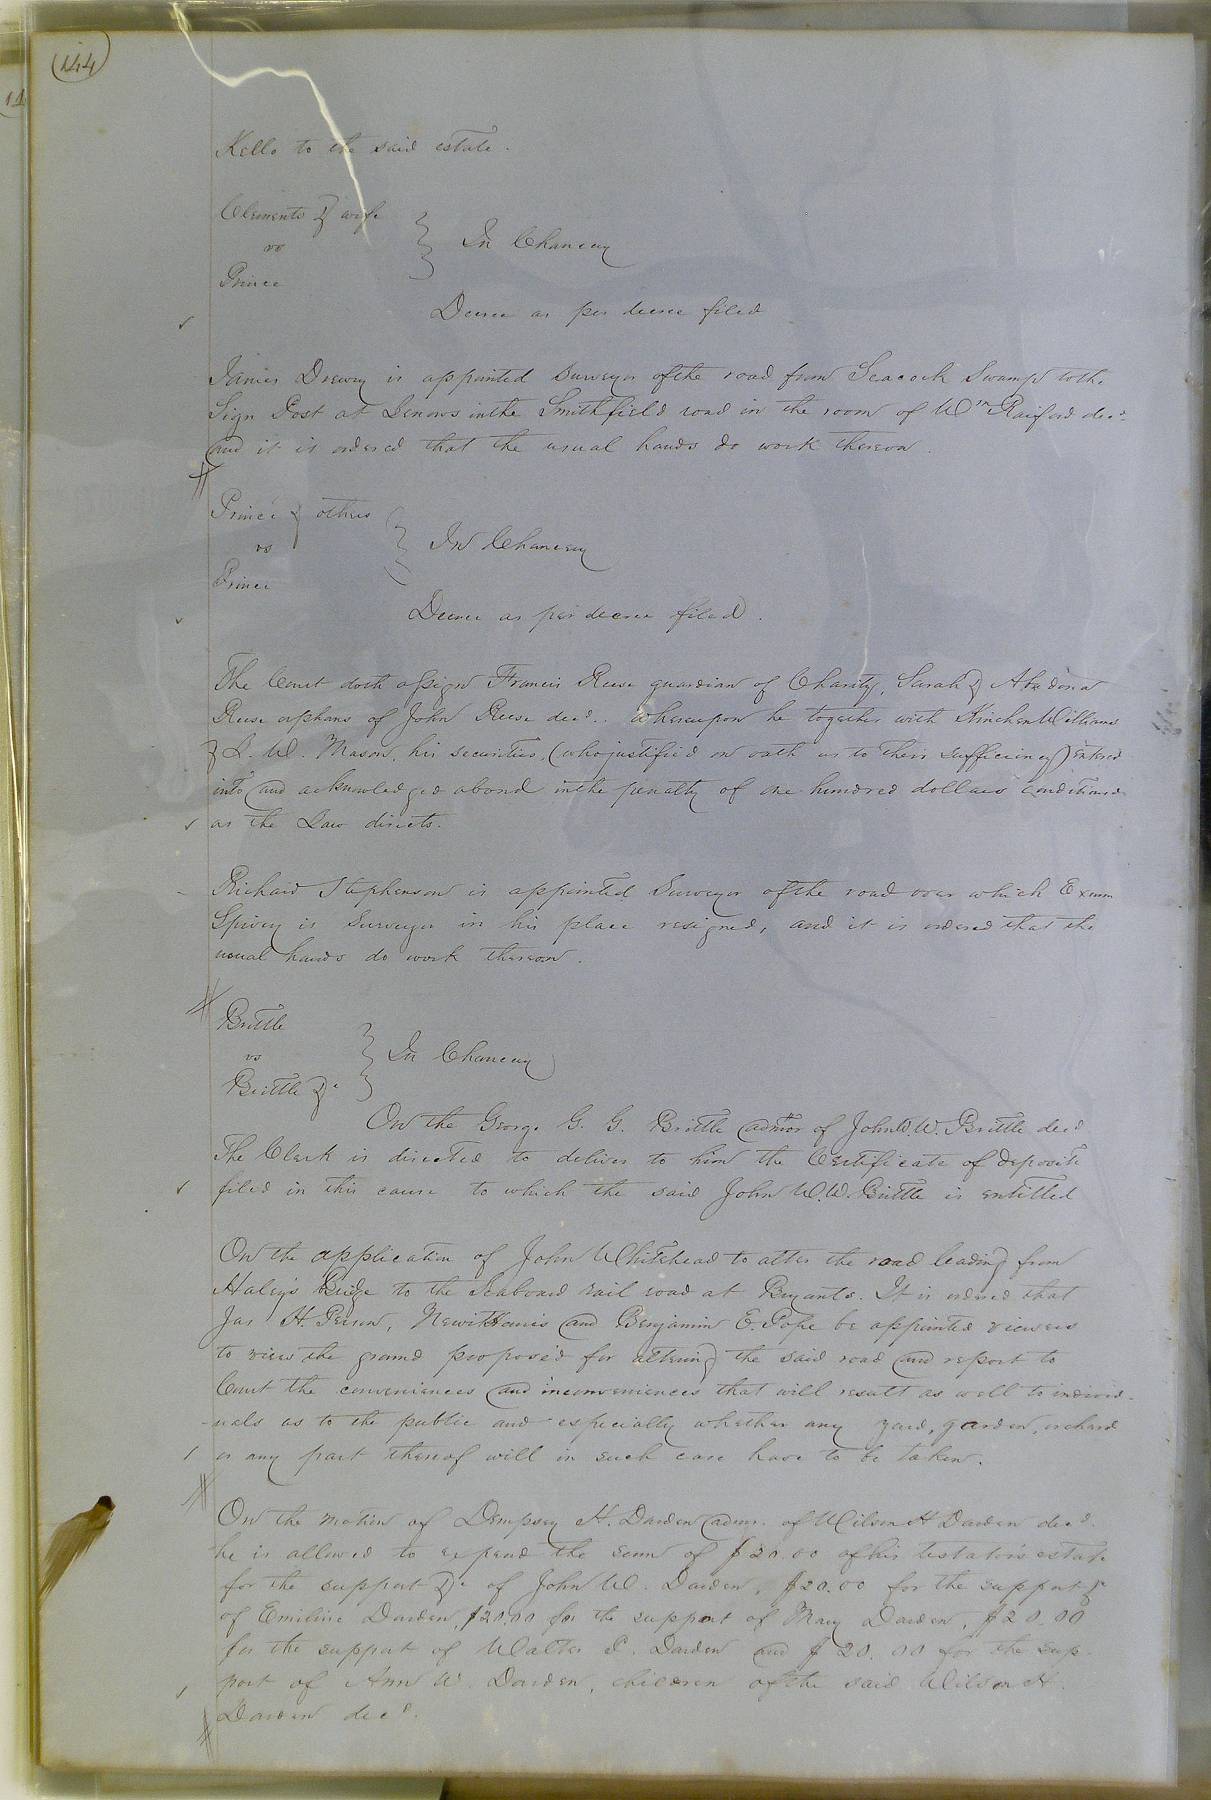 144
Kello to the said estate.
Clements & wife
vs
Prince
In Chancery
Decree as per decree filed
James Drewry is appointed Surveyor of the road from Seacock Swamp to the
Sign Post at Lenows in the Smithfield road in the room of Wm Raiford decd
and it is ordered that the usual hands do work thereon.
Prince & others
vs
Prince
In Chancery
Decree as per decree filed.
The Court doth assign Francis Reese guardian of Charity, Sarah &
Reese orphans of John Reese decd. Whereupon he together with Kinchen Williams
& L. W. Mason, his securities, (who justified on oath as to their sufficiency) entered
into and acknowledged a bond in the penalty of one hundred dollars conditioned
as the Law directs.
Richard Stephenson is appointed Surveyor of the road over which Exum
Spivey is Surveyor in his place resigned, and it is ordered that the
usual hands do work thereon.
Brittle
vs
Brittle &c
In Chancery
On the George G. G. Brittle admor of John W. W. Brittle decd
The Clerk is directed to deliver to him the Certificate of deposite
filed in this cause to which the said John W. W. Brittle is entitled
On the application of John Whitehead to alter the road leading from
Haley's Bridge to the Seaboard rail road at Bryants. It is ordered that
Jas H. Person, Newit Harris and Benjamin E. Pope be appointed viewers
to view the ground proposed for altering the said road and report to
Court the conveniences and inconveniences that will result as well to individ-
-uals as to the public and especially whether any yard, garden, orchard
or any part thereof will in such case have to be taken.
On the motion of Dempsey H. Darden admr. of Wilson H Darden decd.
he is allowed to expend the sum of $20.00 of his testator's estate
for the support &c of John W. Darden, $20.00 for the support &
of Emiline Darden, $20.00 for the support of Mary Darden, $20.00
for the support of Walter P. Darden and $20.00 for the sup-
port of Ann W. Darden, children of the said Wilson H.
Darden decd.